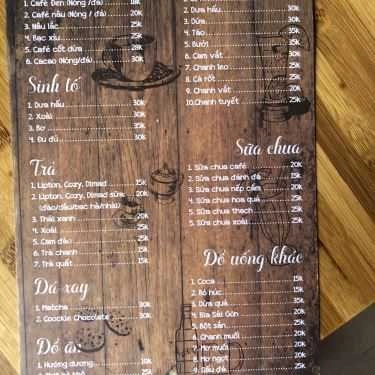 1. Café Đen (Nóng /đá) 18k
2. Café nâu (Nóng / đá) 20k
3. Nâu lắc 25k
4. Bạc xỉu 25k
5. Café cốt dừa 28k
6. Cacao (Nóng/đá) 30k
Sinh tố
1. Dưa hấu 30k
2. Xoài 30k
3. Bơ 35k
4. Đu đủ 30k
Trà
1. Lipton, Cozy, Dimad 15k
2. Lipton, Cozy, Dimad sữa 20k
(đào/dâu/bạc hà/nhài)
3. Thái xanh 20k
4. Xoài 25k
5. Cam đào 25k
6. Trà chanh 15k
7. Trà quất 15k
Đá xay
1. Matcha 30k
2. Coockie Chocolate 30k
Đồ ăn
1. Hướng dương 10k
2. Dưa hấu 30k
3. Dứa 30k
4. Táo 35k
5. Bưởi 35k
6. Cam vắt 30k
7. Chanh leo 25k
8. Cà rốt 25k
9. Chanh vắt 20k
10.Chanh tuyết 25k
Sữa chua
1. Sữa chua café 20k
2. Sữa chua đánh đá 15k
3. Sữa chua nếp cẩm 25k
4. Sữa chua hoa quả 25k
5. Sữa chua thạch 20k
6. Sữa chua xoài 25k
Đồ uống khác
1. Coca 15k
2. Bò húc 15k
3. Dừa quả 35k
4. Bia Sài Gòn 20k
5. Bột sắn 25k
6. Chanh muối 20k
7. Mơ muối 20k
8. Mơ ngọt 20k
9. Dâu đá 25k